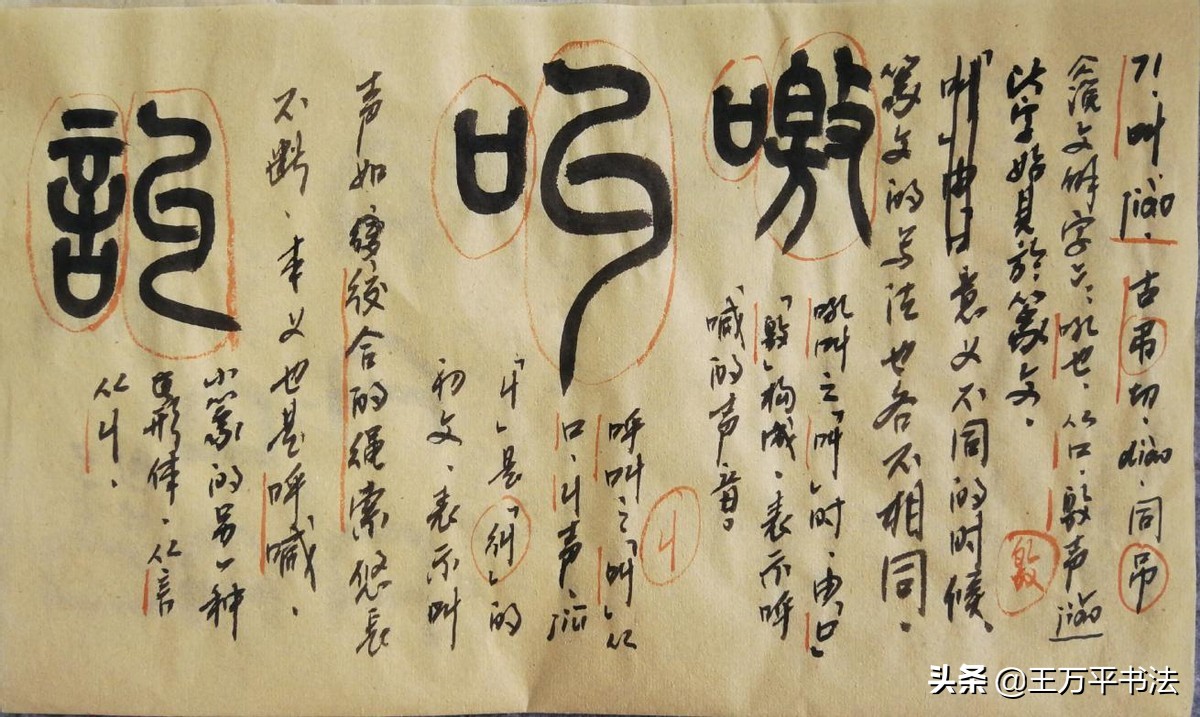 71、叫 jiào、古吊切、diào、同吊
文解字云、吼也、从口、敫声 jiǎo
敫
此字始见於篆文。
「叫」意义不同的时候、
篆文的写法也各不相同。
噭
吼叫之「叫」时、由「口」
「敫」构成、表示呼
喊的声音。
叫
丩
呼叫之「叫」从
口、丩声、jiū
「丩」是「糾」的
初文、表示叫
声如绞合的绳索悠长
不断、本义也是呼喊、
訆
小篆的另一种
形体、从言
从丩、
头条 @王万平书法